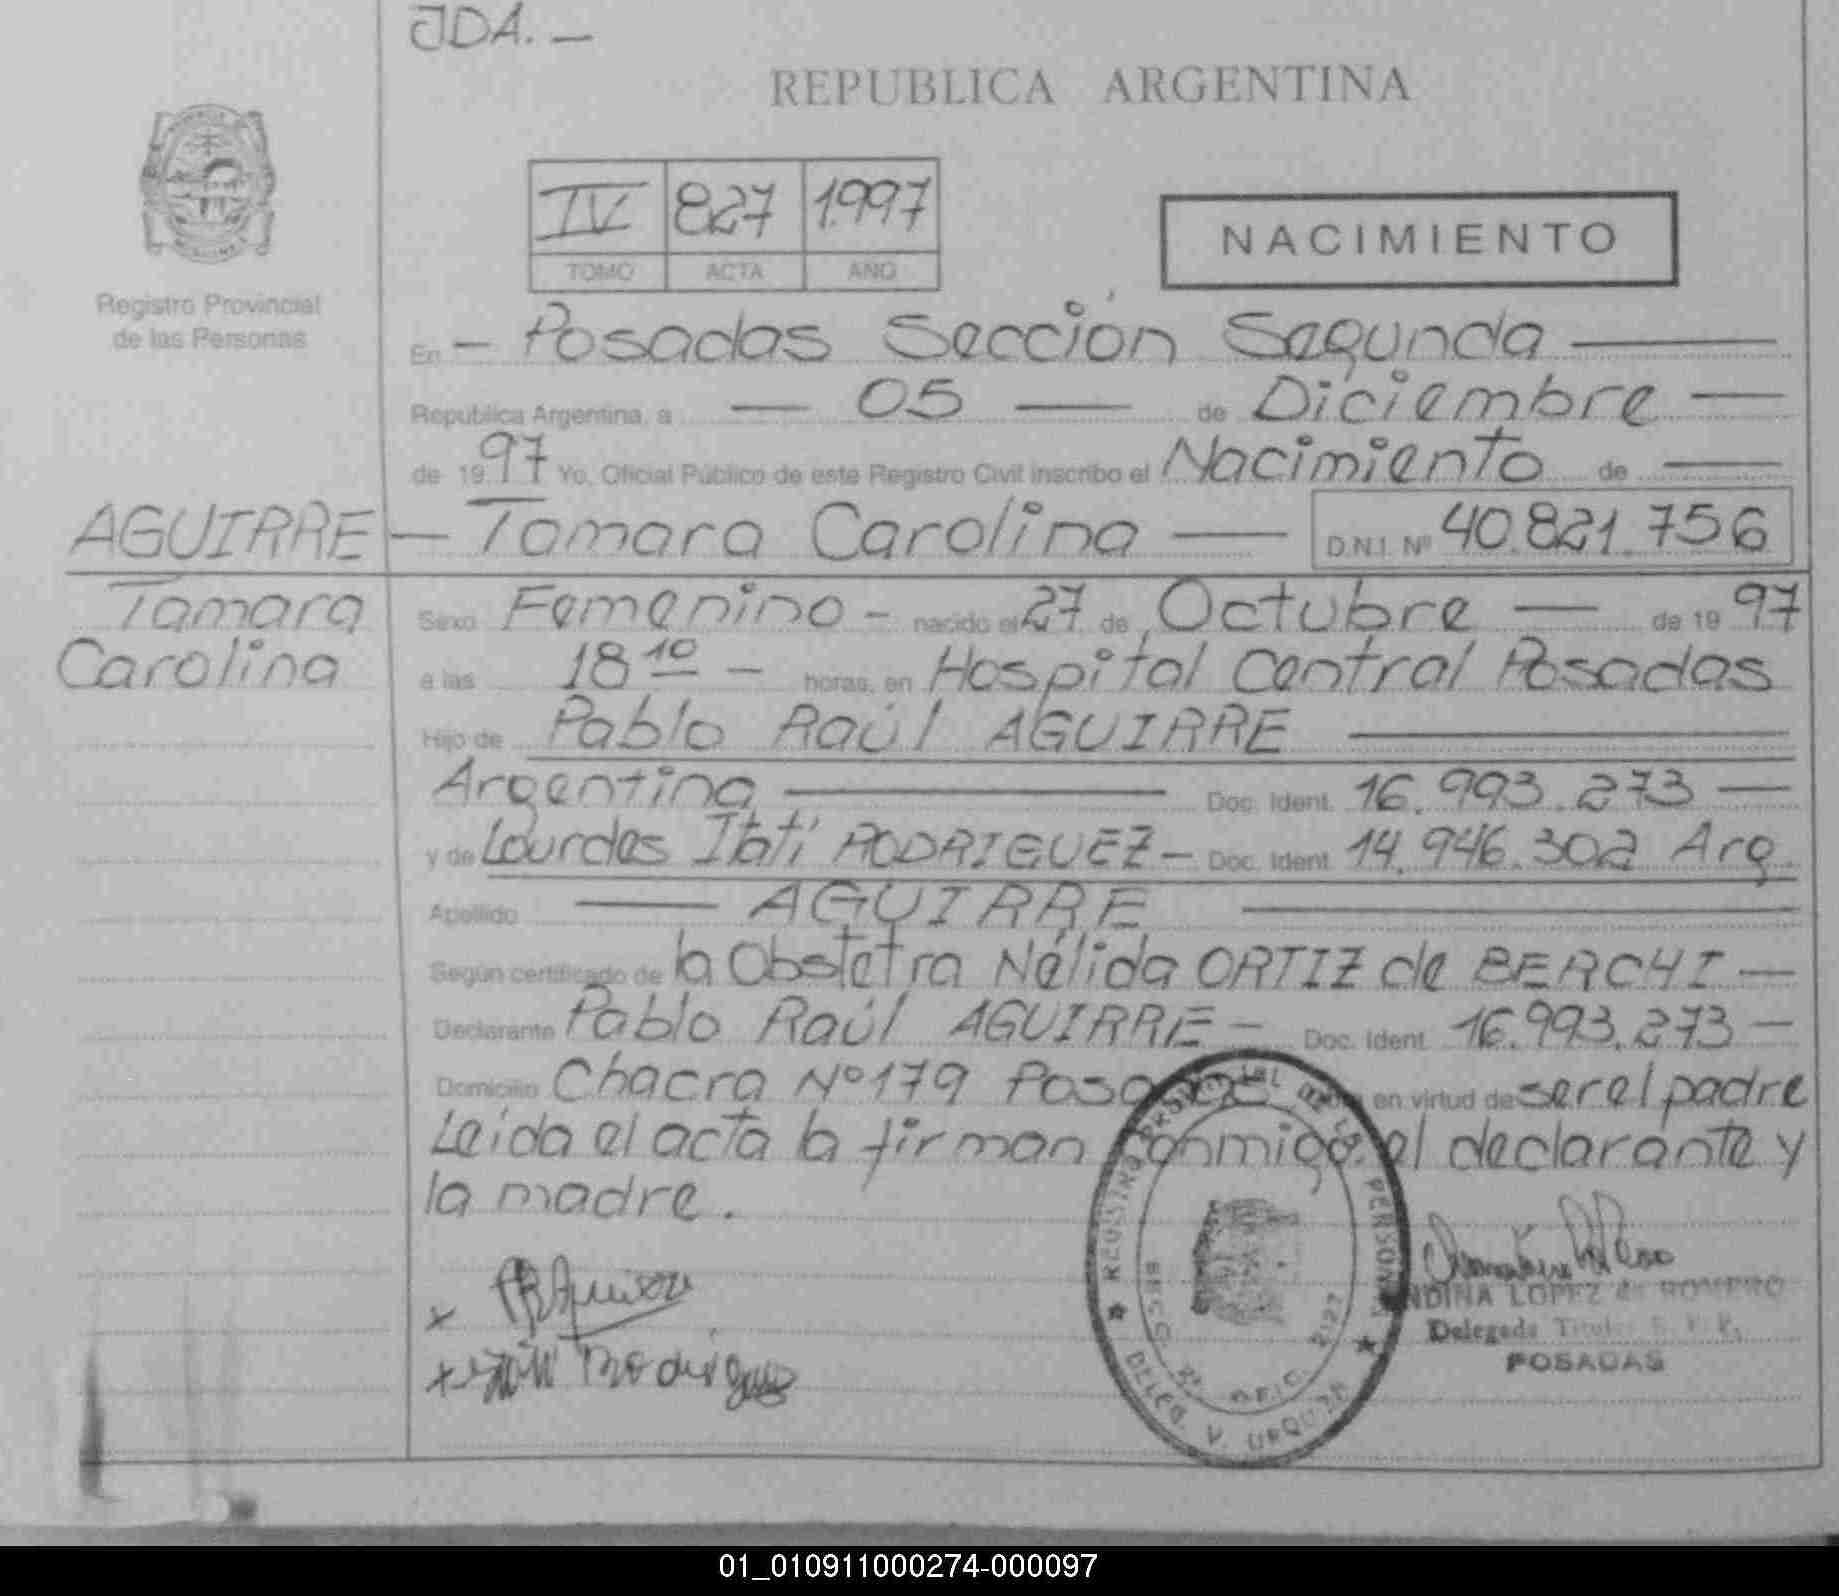 JDA. —
REPUBLICA ARGENTINA
IV 827 1997
TOMO ACTA AÑO
NACIMIENTO
Registro Provincial
de las Personas
En — Posadas Sección Segunda —
República Argentina, a — 05 — de Diciembre —
de 1997 Yo, Oficial Público de este Registro Civil inscribo el Nacimiento de —
AGUIRRE — Tamara Carolina — D.N.I. Nº 40.821.756
Tamara
Carolina
Sexo Femenino - nacido el 27 de Octubre — de 1997
a las 18 10 — horas, en Hospital Central Posadas
Hijo de Pablo Raúl AGUIRRE —
Argentina — Doc. Ident. 16.993.273 —
y de Lourdes Itatí RODRIGUEZ — Doc. Ident. 14.946.302 Arg.
Apellido — AGUIRRE —
Según certificado de la Obstetra Nélida ORTIZ de BERCHI —
Declarante Pablo Raúl AGUIRRE — Doc. Ident. 16.993.273 —
Domicilio Chacra Nº 179 Posadas en virtud de ser el padre
Leida el acta la firman conmigo, el declarante y
la madre.
x PRAguirre
x Itatí Rodriguez
REGISTRO PROVINCIAL DE LAS PERSONAS
SECC. 2ª OFIC. 2127
DELEG. V. URQUIZA
LOPEZ de ROMERO
Delegada Titular R. P. P.
POSADAS
01_010911000274-000097